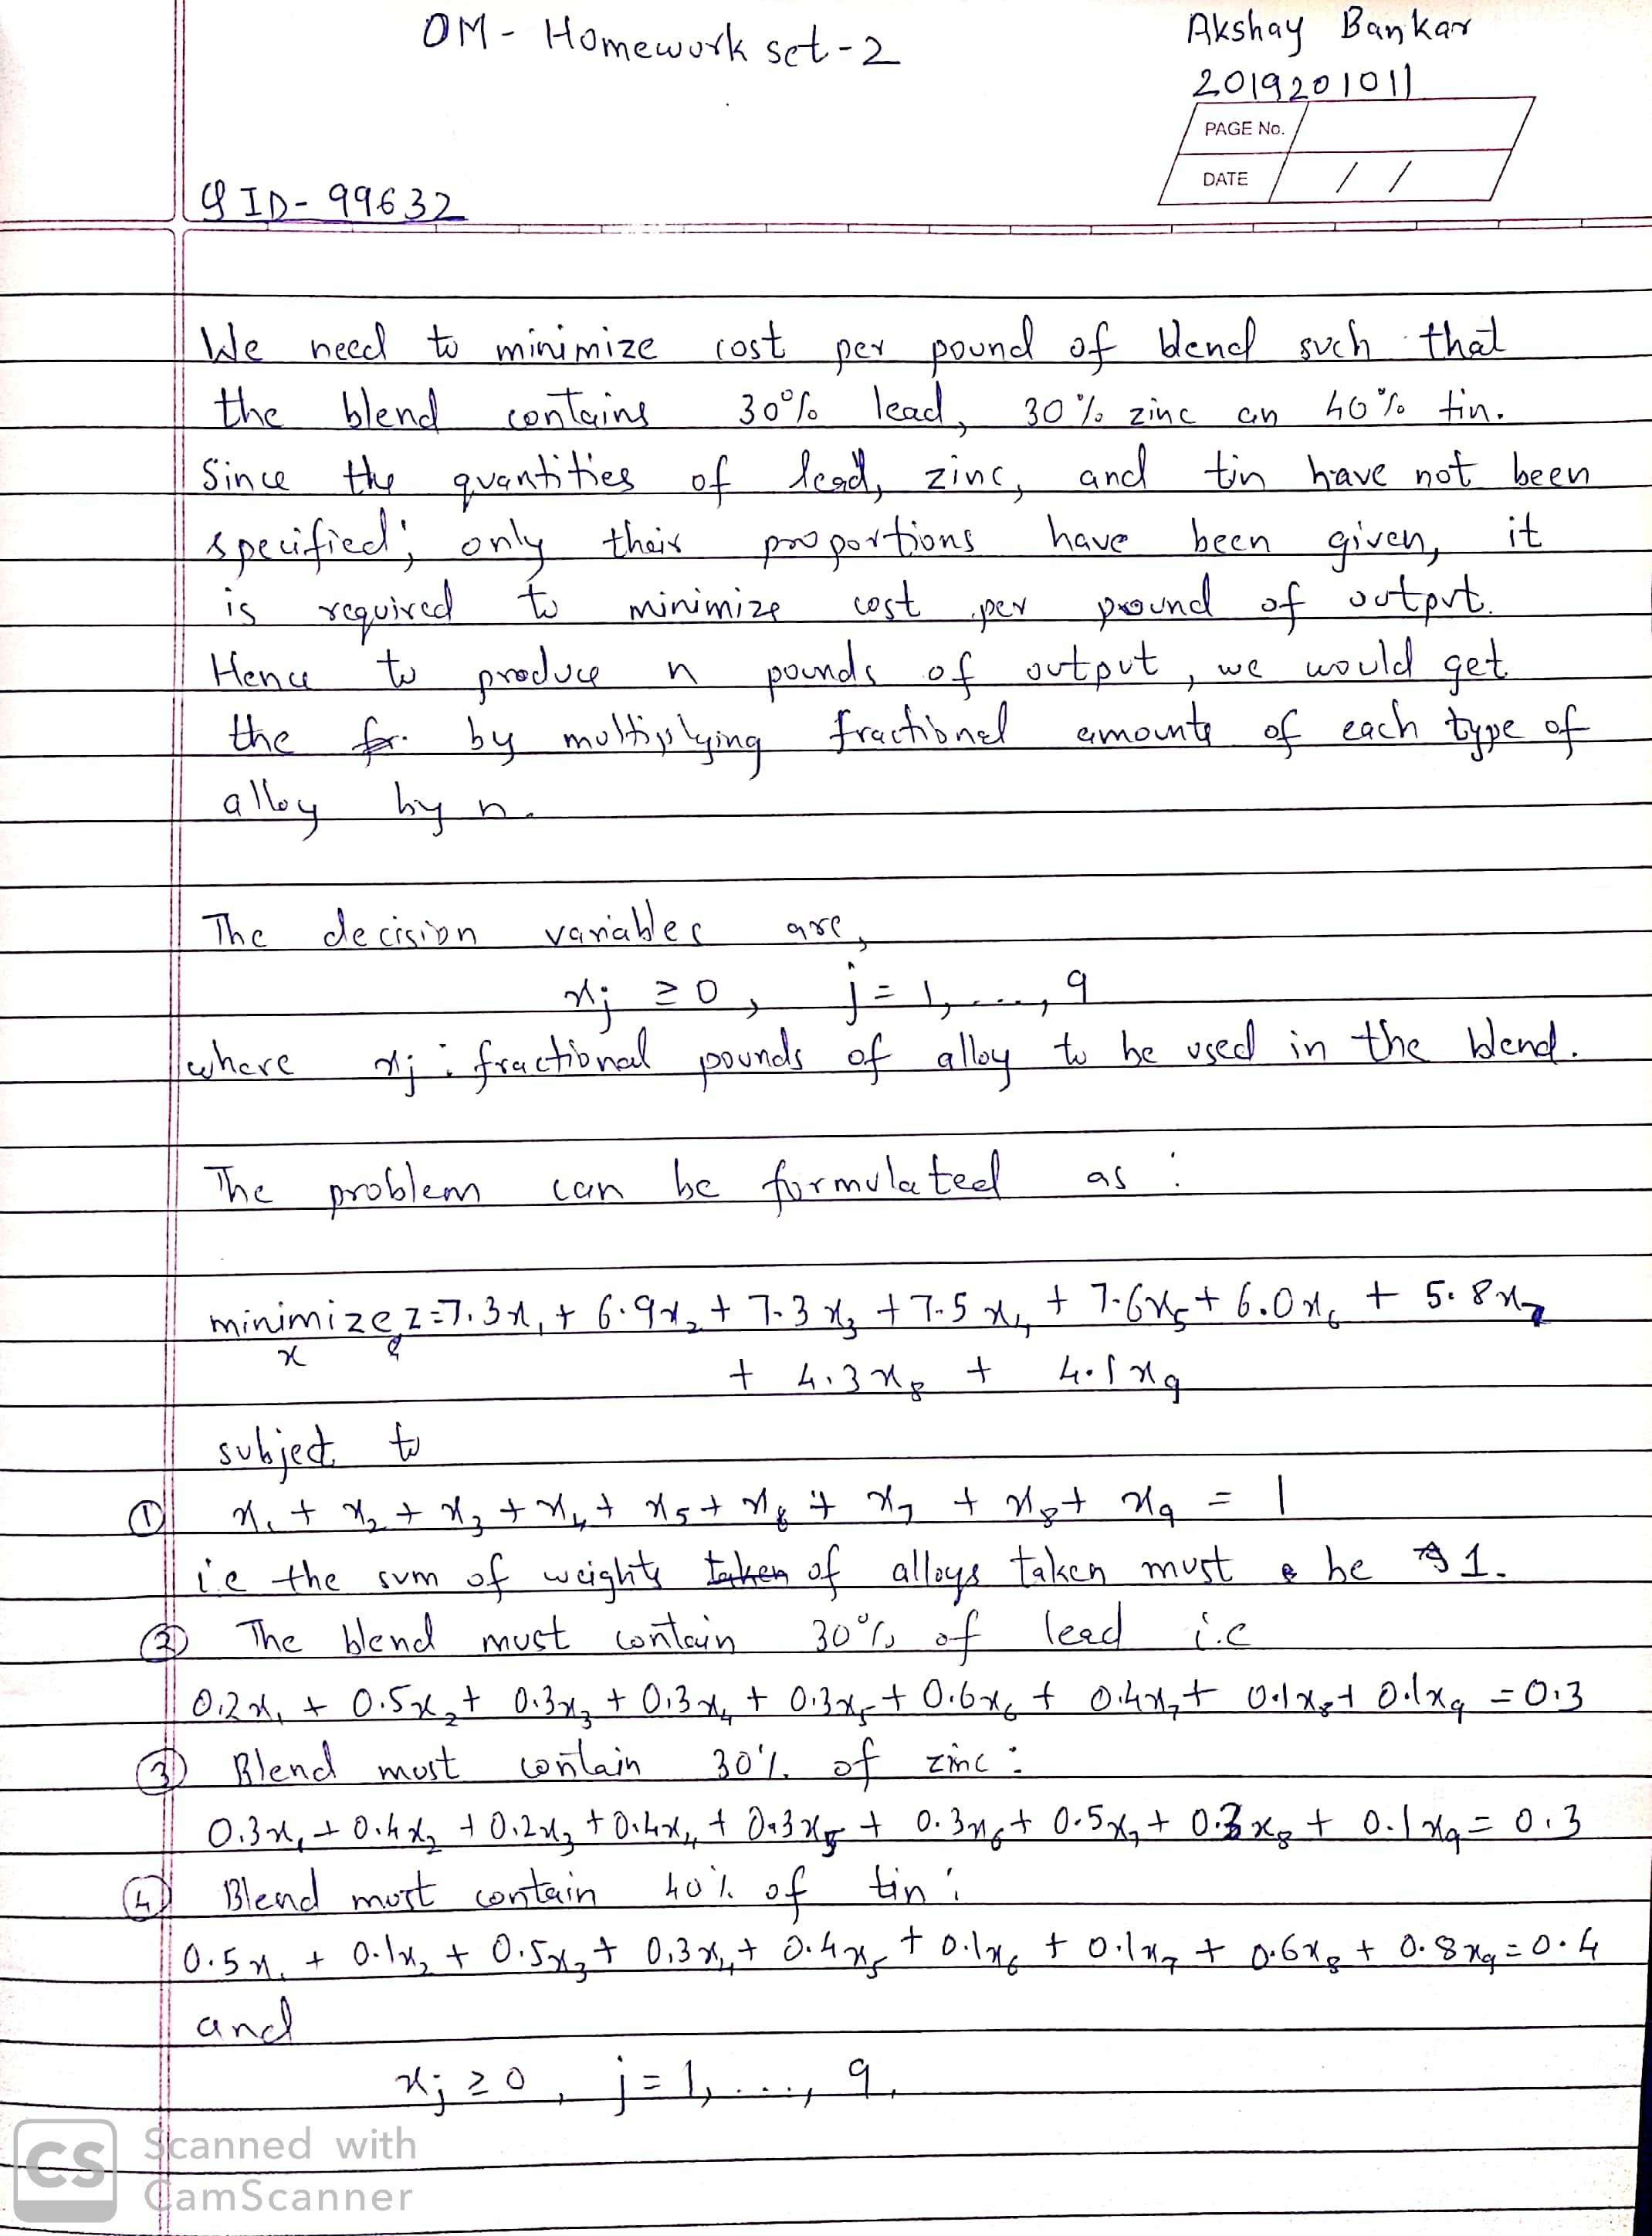 OM - Homework set-2
Akshay Bankar
2019201011
PAGE No.
DATE / /
QID- 99632
We need to minimize cost per pound of blend such that
the blend contains 30% lead, 30% zinc an 40% tin.
Since the quantities of lead, zinc, and tin have not been
specified; only their proportions have been given, it
is required to minimize cost per pound of output.
Hence to produce n pounds of output, we would get
the by multiplying fractional amounts of each type of
alloy by n.
The decision variables are,
xj ≥ 0, j = 1, ..., 9
where xj : fractional pounds of alloy to be used in the blend.
The problem can be formulated as :
minimize z = 7.3x₁ + 6.9x₂ + 7.3x₃ + 7.5x₄ + 7.6x₅ + 6.0x₆ + 5.8x₇
x
+ 4.3x₈ + 4.1x₉
subject to
① x₁ + x₂ + x₃ + x₄ + x₅ + x₆ + x₇ + x₈ + x₉ = 1
i.e the sum of weights taken of alloys taken must be 1.
② The blend must contain 30% of lead i.e
0.2x₁ + 0.5x₂ + 0.3x₃ + 0.3x₄ + 0.3x₅ + 0.6x₆ + 0.4x₇ + 0.1x₈ + 0.1x₉ = 0.3
③ Blend must contain 30% of zinc :
0.3x₁ + 0.4x₂ + 0.2x₃ + 0.4x₄ + 0.3x₅ + 0.3x₆ + 0.5x₇ + 0.3x₈ + 0.1x₉ = 0.3
④ Blend must contain 40% of tin :
0.5x₁ + 0.1x₂ + 0.5x₃ + 0.3x₄ + 0.4x₅ + 0.1x₆ + 0.1x₇ + 0.6x₈ + 0.8x₉ = 0.4
and
xj ≥ 0, j = 1, ..., 9.
CS Scanned with
CamScanner